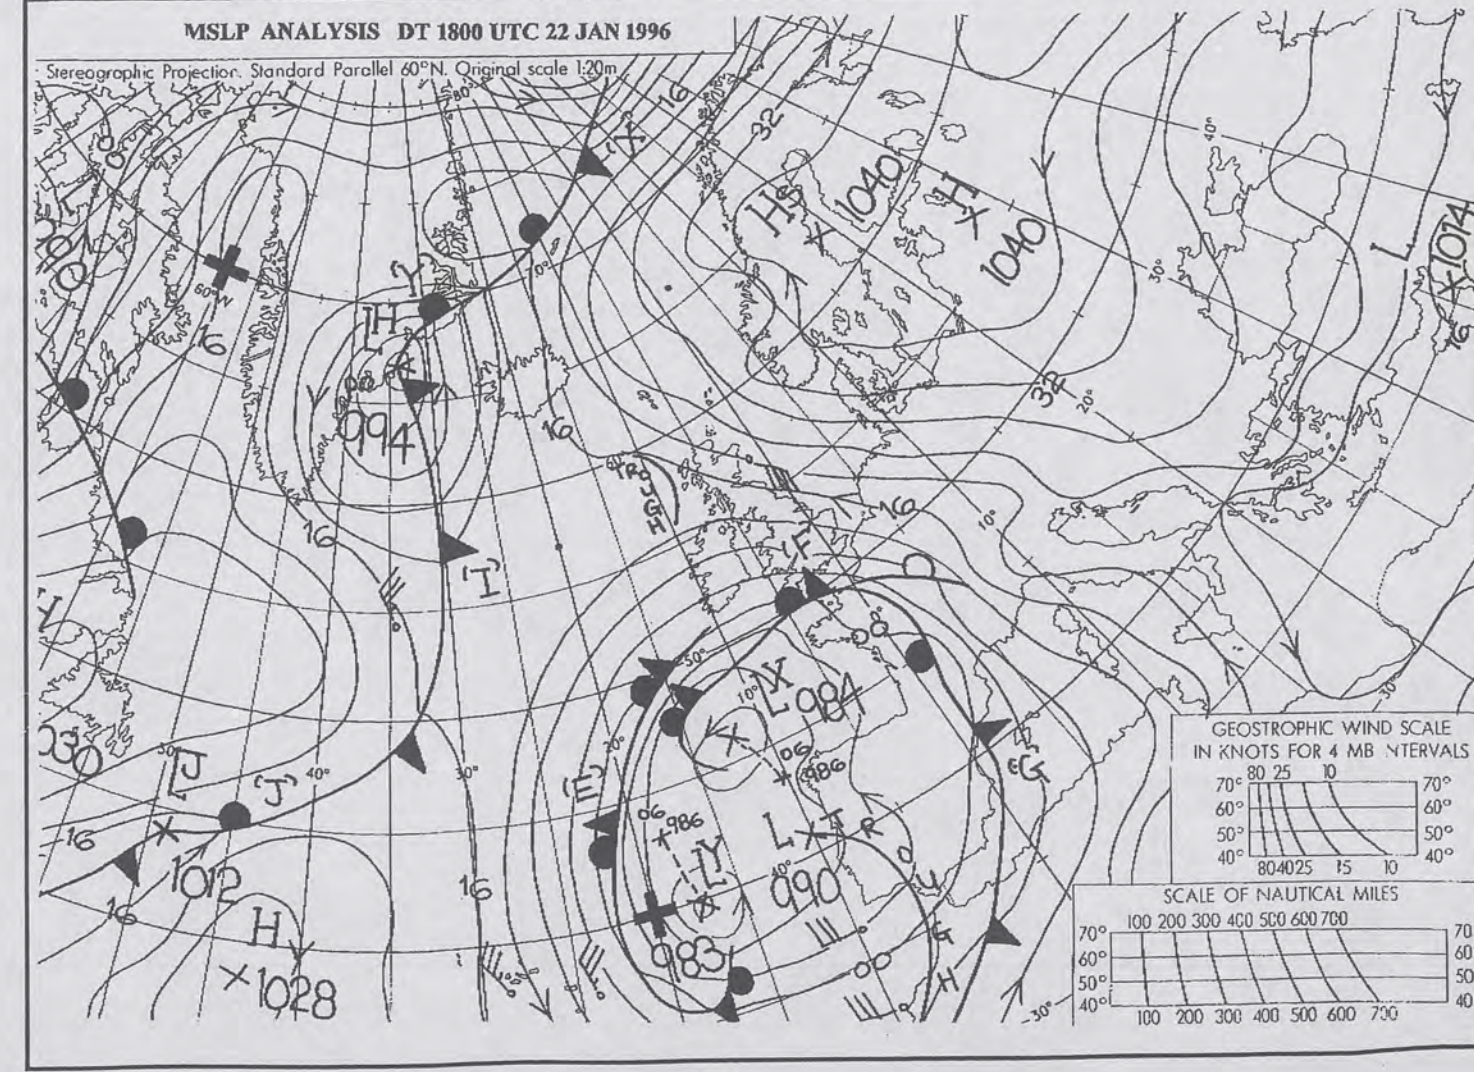 MSLP ANALYSIS DT 1800 UTC 22 JAN 1996
Stereographic Projection. Standard Parallel 60°N. Original scale 1:20m
80°
16
'X'
32
H
1040
H
1040
40°
L
1014
16
30°
60°W
16
'Y'
LH
994
70°
16
32
20°
60°
TROUGH
16
10°
'F'
16
'I'
00
50°
10°
LX
984
06
986
'G'
20°
'E'
06
986
LY
983
L
990
40°
TROUGH
00
030
50°
LJ
'J'
40°
30°
16
1012
16
16
H
1028
30°
30°
GEOSTROPHIC WIND SCALE
IN KNOTS FOR 4 MB INTERVALS
80 25 10
70° 70°
60° 60°
50° 50°
40° 40°
80 40 25 15 10
SCALE OF NAUTICAL MILES
100 200 300 400 500 600 700
70° 70
60° 60
50° 50
40° 40
100 200 300 400 500 600 700